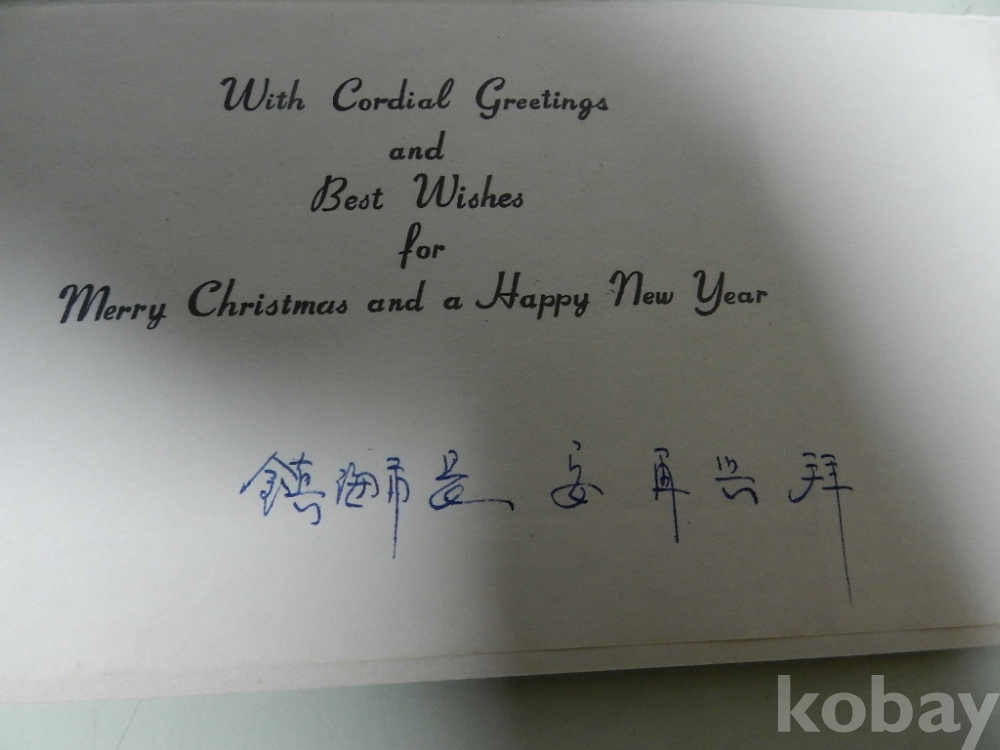 With Cordial Greetings
and
Best Wishes
for
Merry Christmas and a Happy New Year
鎭海市長 安 再 拜
kobay